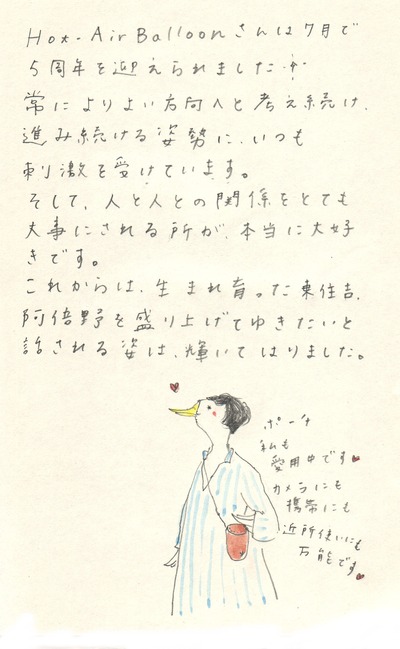 Hot-Air Balloonさんは7月で
5周年を迎えられました
常によりよい方向へと考え続け、
進み続ける姿勢に、いつも
刺激を受けています。
そして、人と人との関係をとても
大事にされる所が、本当に大好
きです。
これからは、生まれ育った東住吉、
阿倍野を盛り上げてゆきたいと
話される姿は、輝いてはりました。
ポーチ
私も
愛用中です
カメラにも
携帯にも
近所使いにも
万能です